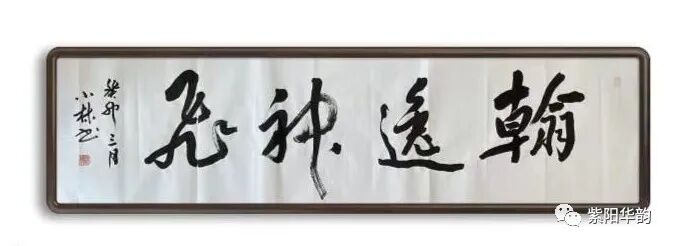 翰逸神飛
癸卯三月
小林书
紫阳华韵